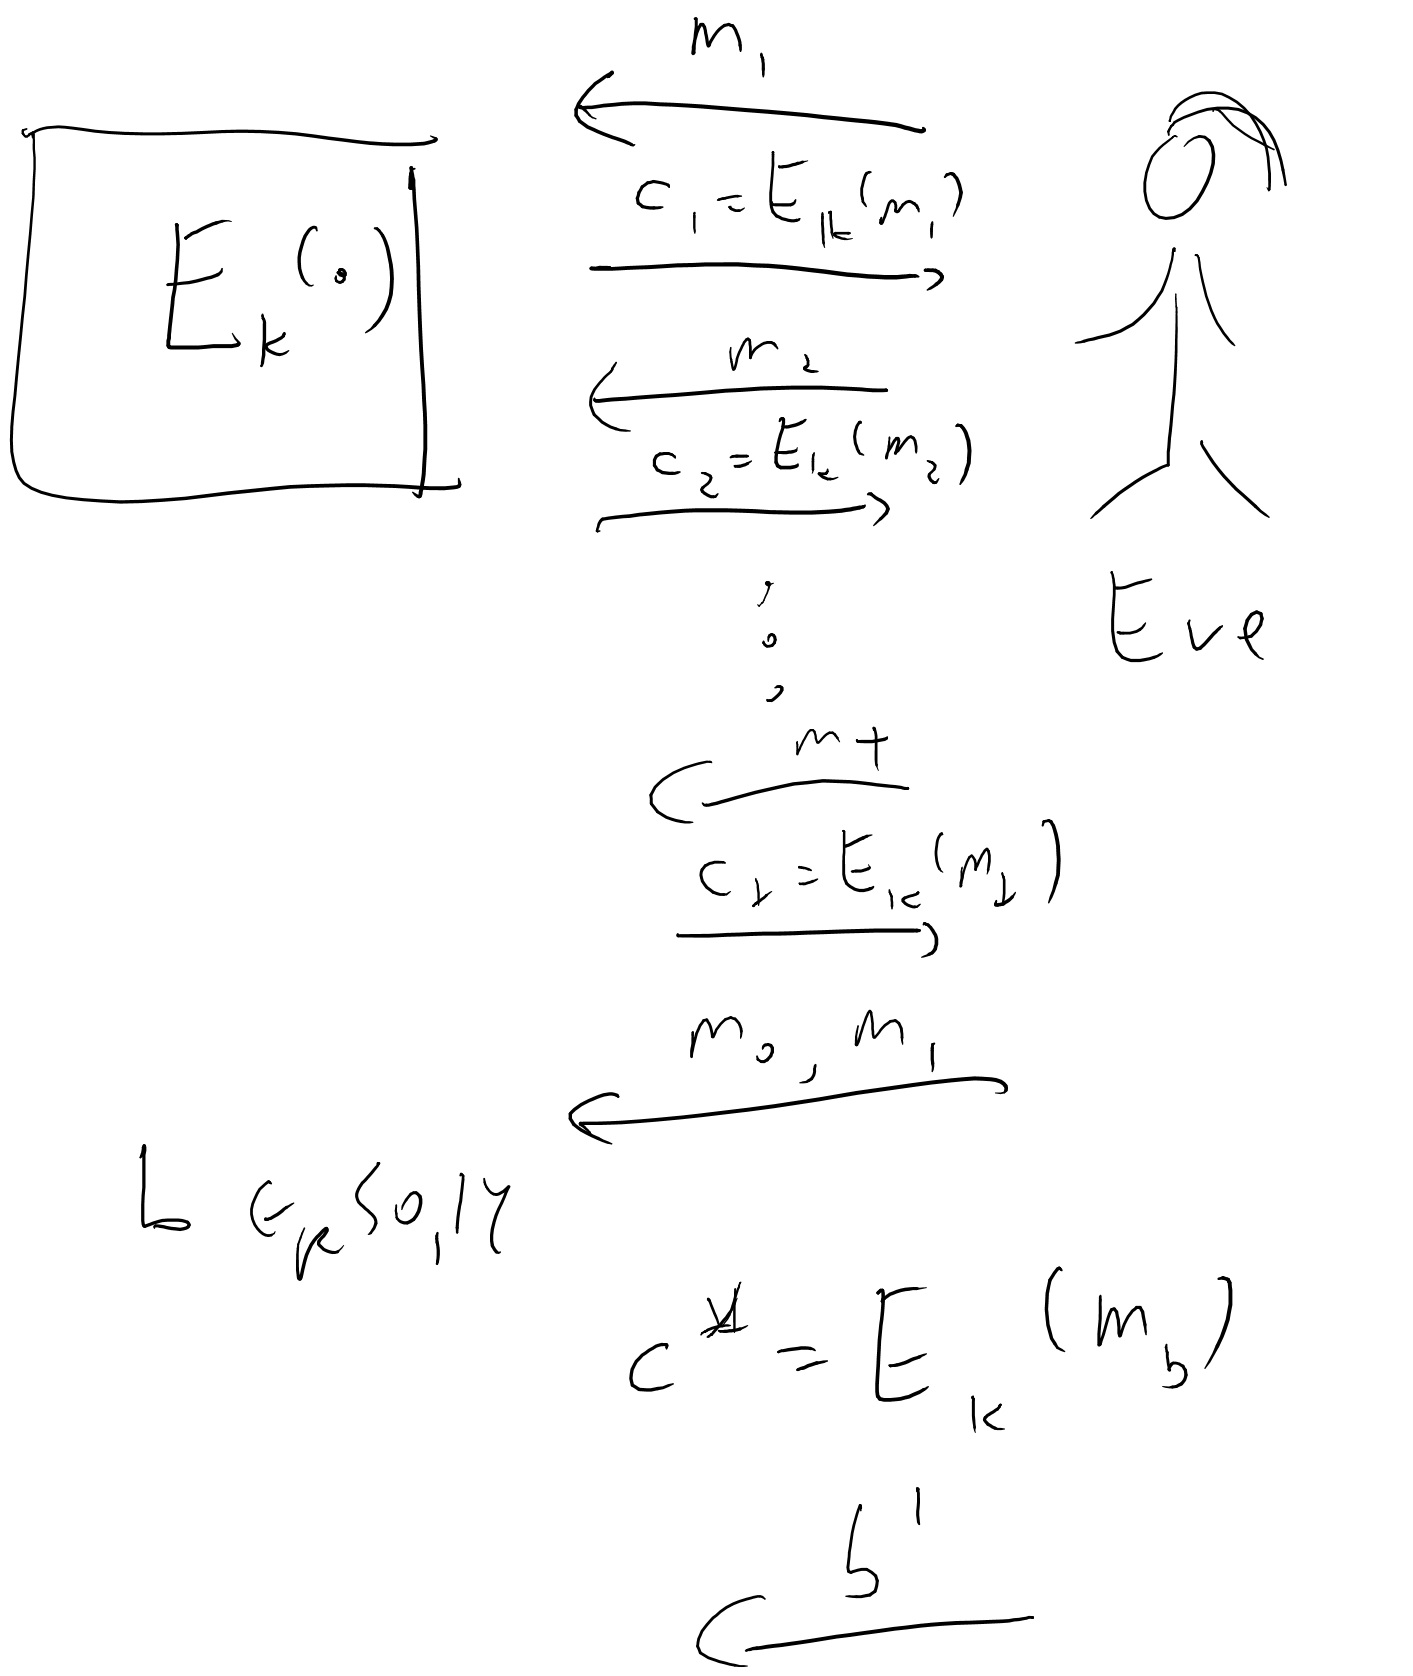 m₁
c₁ = E_k(m₁)
E_k(·)
m₂
c₂ = E_k(m₂)
⋮
Eve
m_t
c_t = E_k(m_t)
m₀, m₁
b ∈_R {0,1}
c* = E_k(m_b)
b'